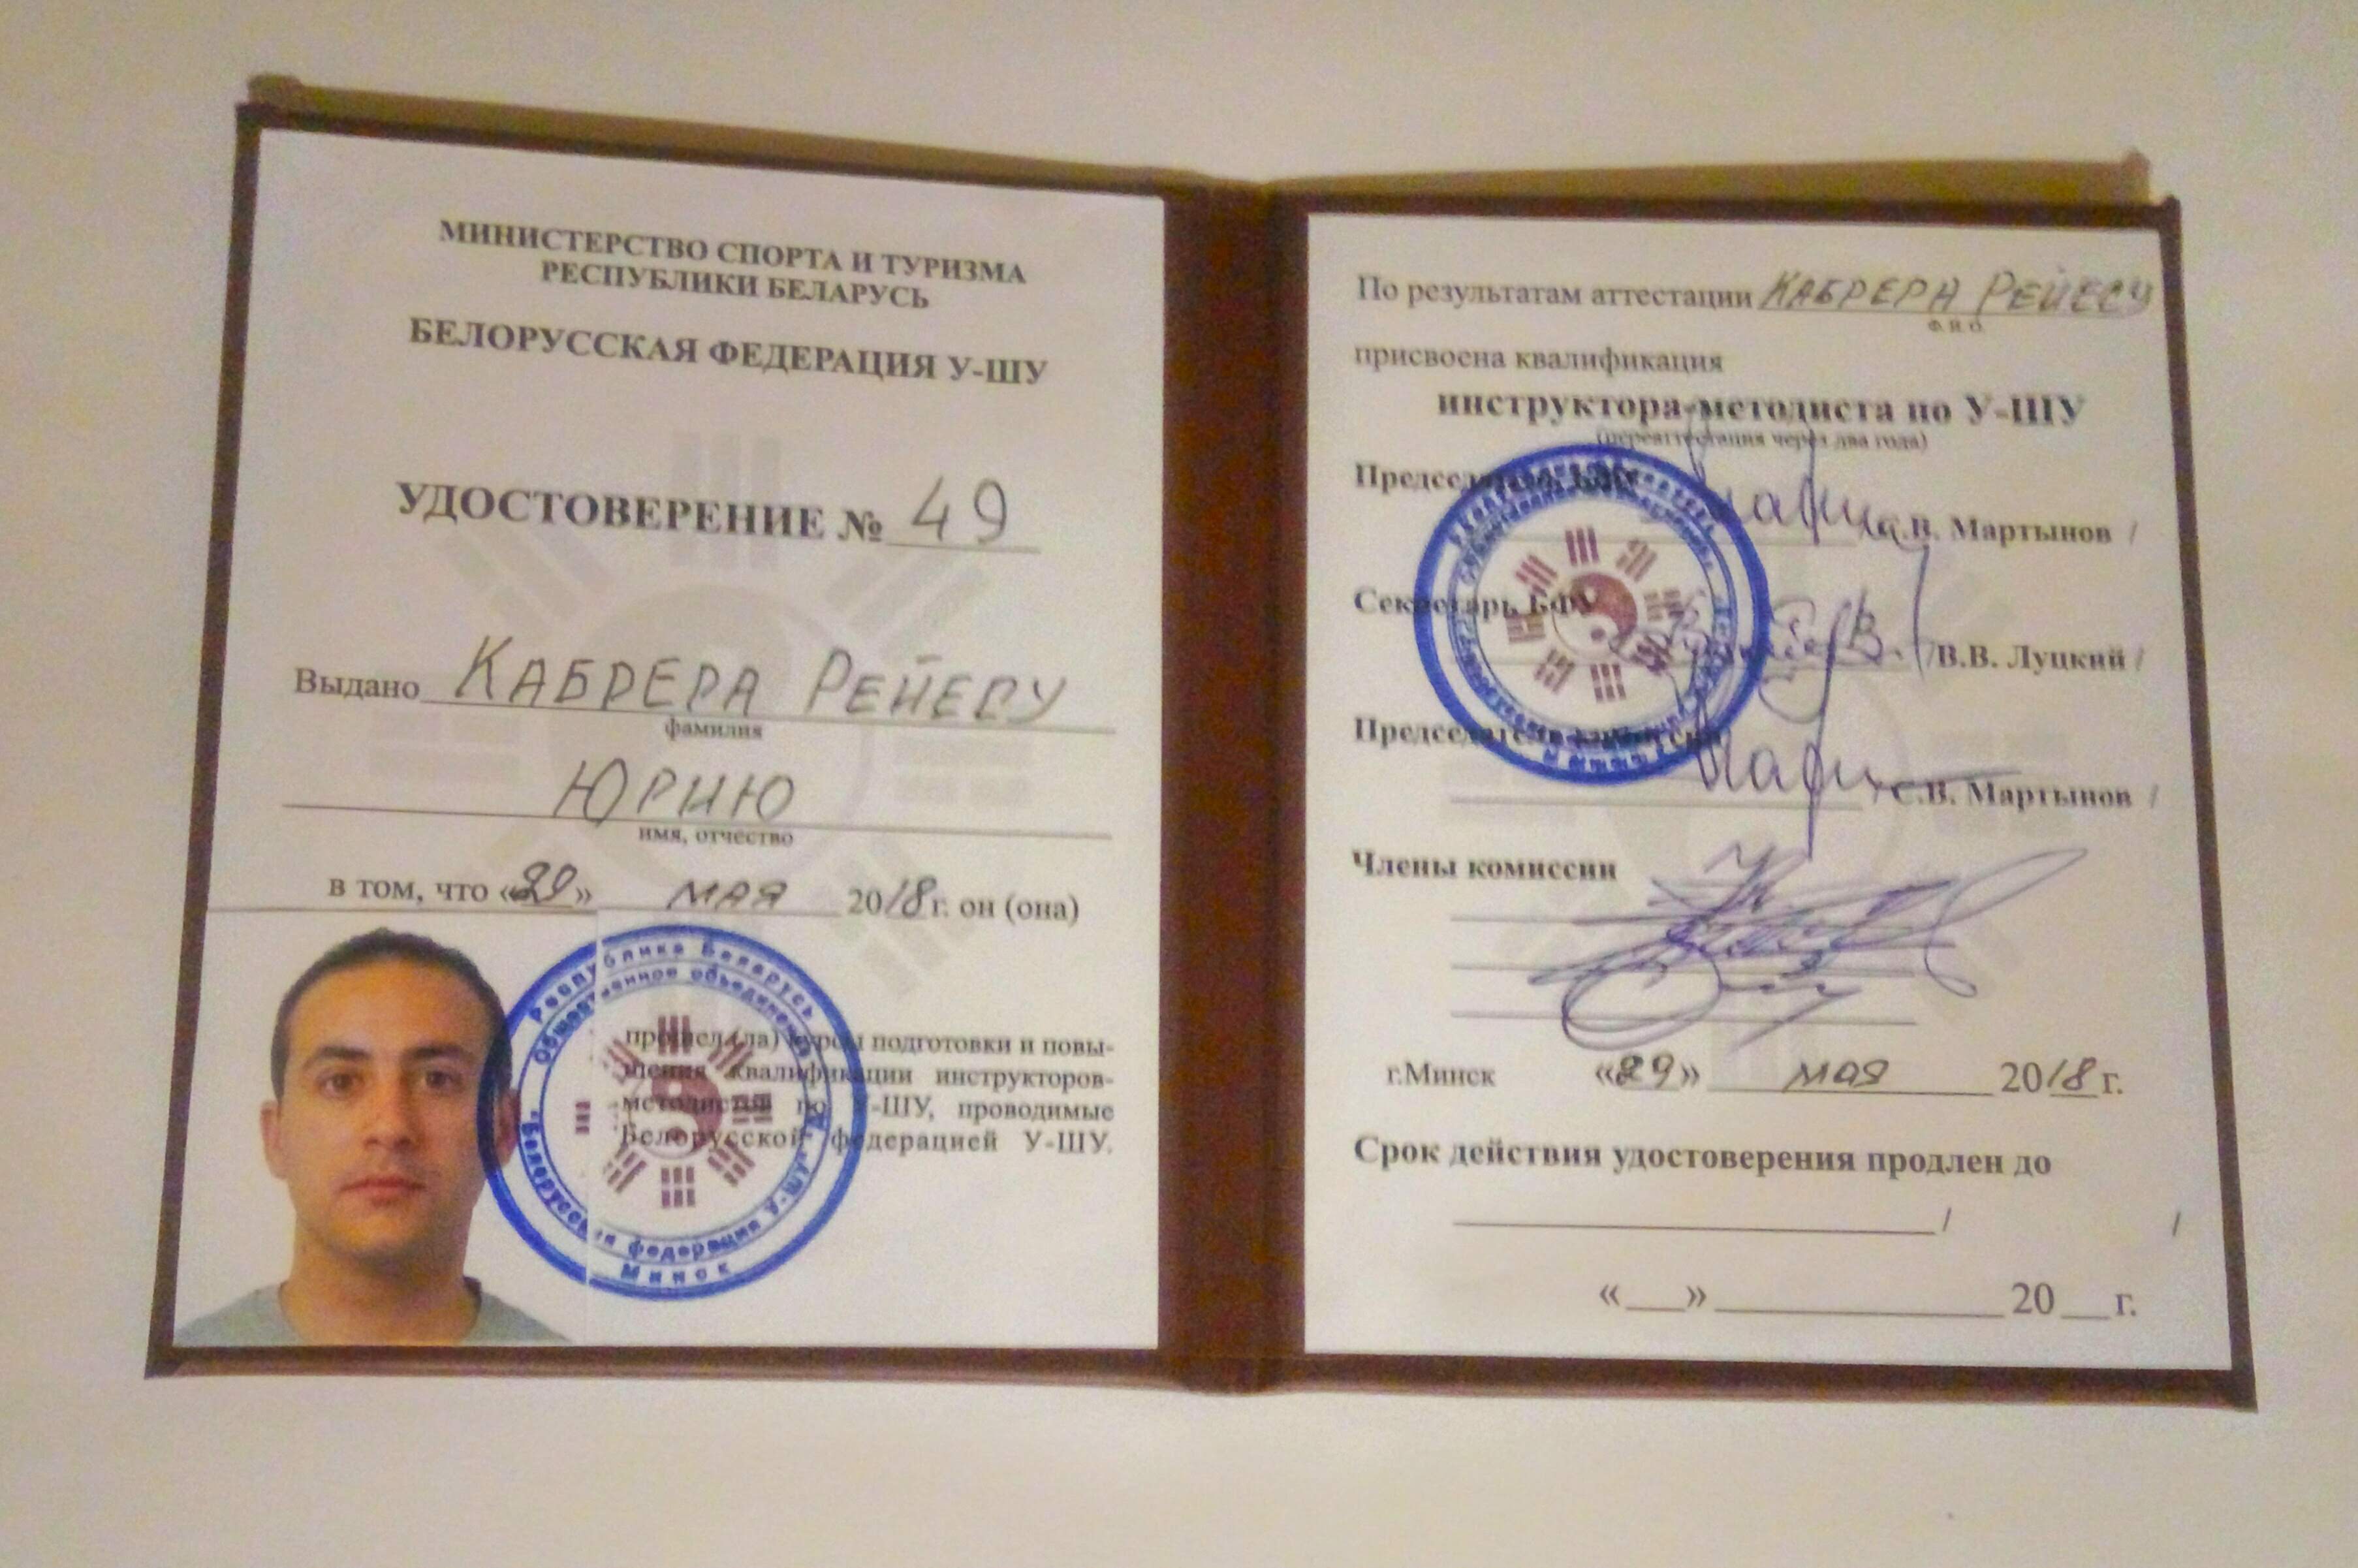 МИНИСТЕРСТВО СПОРТА И ТУРИЗМА
РЕСПУБЛИКИ БЕЛАРУСЬ
БЕЛОРУССКАЯ ФЕДЕРАЦИЯ У-ШУ
УДОСТОВЕРЕНИЕ № 49
Выдано КАБРЕРА РЕЙЕСУ
фамилия
ЮРИЮ
имя, отчество
в том, что «29» мая 2018 г. он (она)
прошел (ла) курсы подготовки и повы-
шения квалификации инструкторов-
методистов по У-ШУ, проводимые
Белорусской федерацией У-ШУ.
Республика Беларусь
Общественное объединение
Белорусская федерация У-ШУ
Минск
По результатам аттестации КАБРЕРА РЕЙЕСУ
Ф.И.О.
присвоена квалификация
инструктора-методиста по У-ШУ
(переаттестация через два года)
Председатель БФУ
С.В. Мартынов /
Секретарь БФУ
/В.В. Луцкий /
Председатель комиссии
/ С.В. Мартынов /
Члены комиссии
г.Минск «29» мая 2018 г.
Срок действия удостоверения продлен до
/ /
«___» 20 __ г.